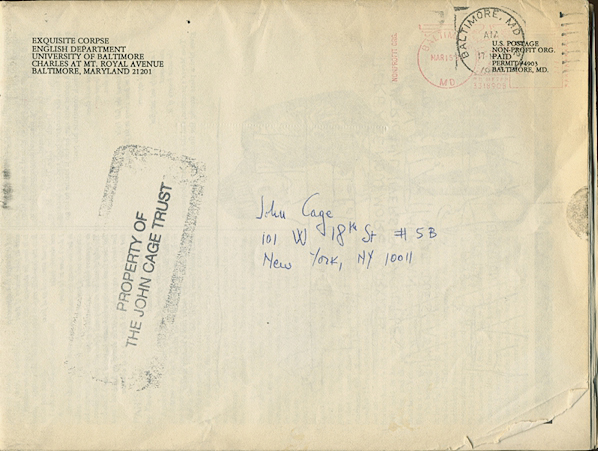 EXQUISITE CORPSE
ENGLISH DEPARTMENT
UNIVERSITY OF BALTIMORE
CHARLES AT MT. ROYAL AVENUE
BALTIMORE, MARYLAND 21201
BALTIMORE, MD
MAR
MD
U.S. POSTAGE
NON-PROFIT ORG.
PAID
PERMIT #4903
BALTIMORE, MD.
PROPERTY OF
THE JOHN CAGE TRUST
John Cage
101 W 18th St # 5B
New York, NY 10011